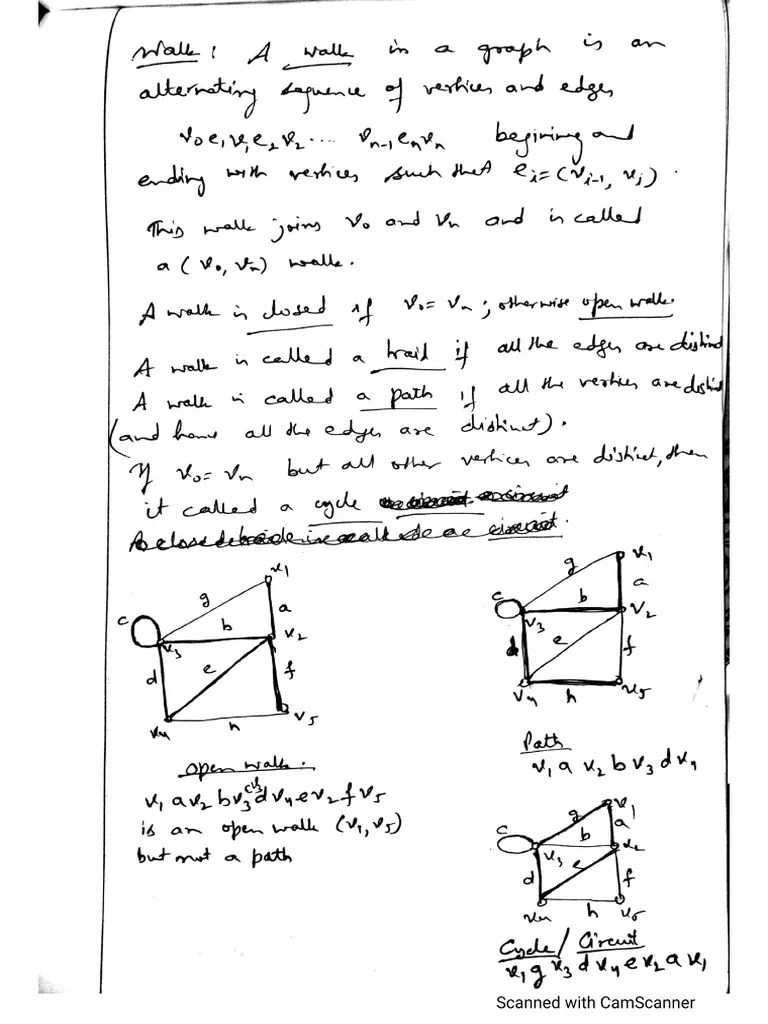 Walk: A walk in a graph is an
alternating sequence of vertices and edges
v0 e1 v1 e2 v2 .... vn-1 en vn begining and
ending with vertices such that ei = (vi-1, vi).
This walk joins v0 and vn and is called
a (v0, vn) walk.
A walk is closed if v0 = vn; otherwise open walk.
A walk is called a trail if all the edges are distinct
A walk is called a path if all the vertices are distinct
(and hence all the edges are distinct).
If v0 = vn but all other vertices are distinct, then
it called a cycle
v1
g
a
c
b
v2
v3
e
d
f
v4
h
v5
open walk.
v1 a v2 b v3 c v3 d v4 e v2 f v5
is an open walk (v1, v5)
but not a path
v1
g
a
c
b
v2
v3
e
d
f
v4
h
v5
Path
v1 a v2 b v3 d v4
v1
g
a
c
b
v2
v3
e
d
f
v4
h
v5
Cycle / Circuit
v1 g v3 d v4 e v2 a v1
Scanned with CamScanner